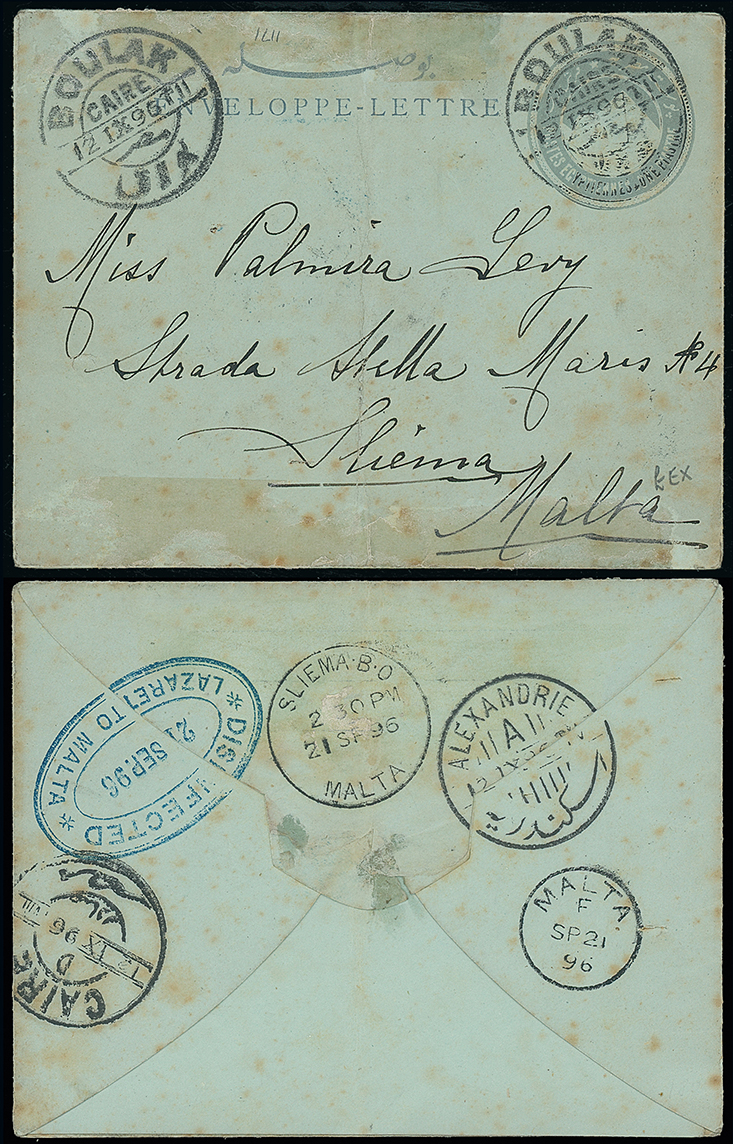 1271
بوصله
ENVELOPPE-LETTRE
BOULAK
CAIRE
12 IX 96 T II
BOULAK
CAIRE
IX 96
POSTES EGYPTIENNES UNE PIASTRE
Miss Palmira Levy
Strada Stella Maris No 4
Sliema
Malta
REX
DISINFECTED
LAZARETTO MALTA
21
SEP. 96
SLIEMA·B·O
2 30 PM
21 SP 96
MALTA
ALEXANDRIE
A
12 IX 96
اسكندرية
CAIRE
D
12 IX 96
MALTA
F
SP 21
96